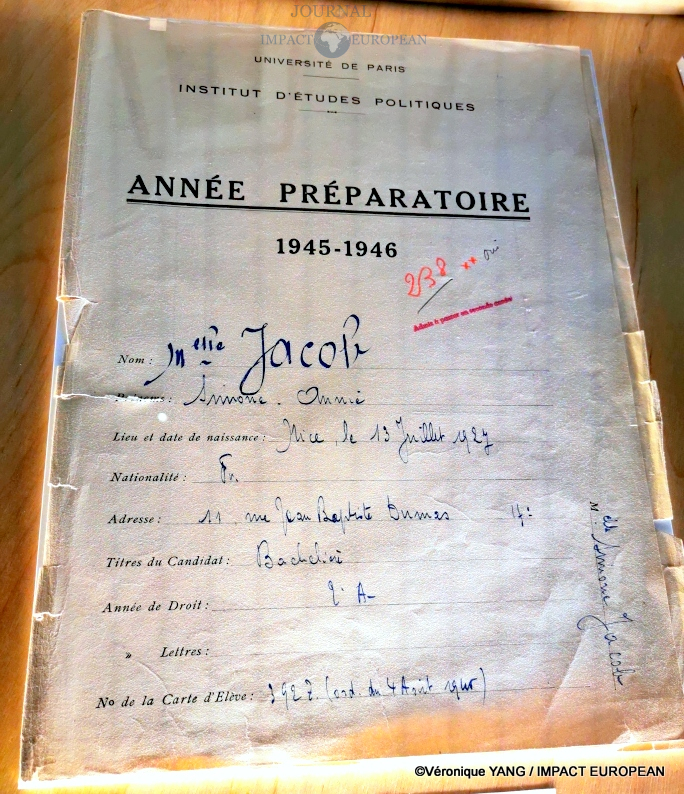 JOURNAL
IMPACT EUROPEAN
UNIVERSITÉ DE PARIS
INSTITUT D'ÉTUDES POLITIQUES
ANNÉE PRÉPARATOIRE
1945-1946
238 ** oui
Admis à passer en seconde année
Nom : Melle Jacob
Prénoms : Simone. Annie
Lieu et date de naissance : Nice, le 13 Juillet 1927
Nationalité : Fr.
Adresse : 11, rue Jean Baptiste Dumas 17e
Titres du Candidat : Bachelière
Année de Droit : 2e A-
» Lettres :
No de la Carte d'Elève : 3927. (ord. du 4 Août 1945)
Melle Simone Jacob
©Véronique YANG / IMPACT EUROPEAN